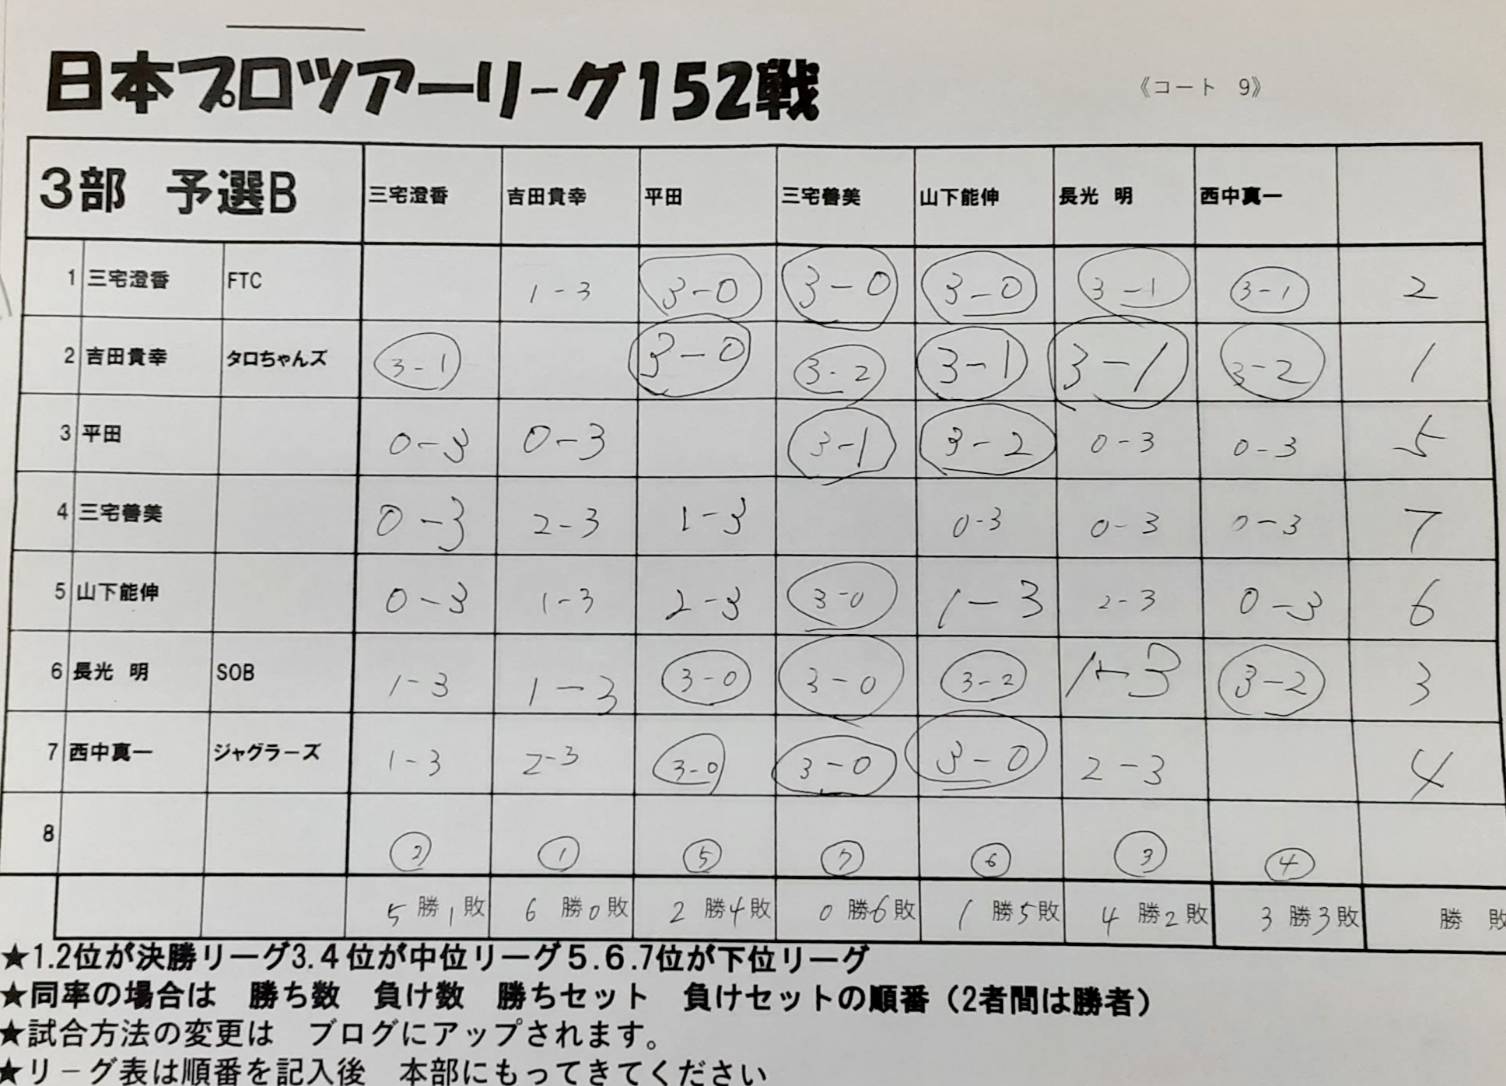 日本プロツアーリーグ152戦 《コート 9》
3部 予選B 三宅澄香 吉田貴幸 平田 三宅善美 山下能伸 長光 明 西中真一
1 三宅澄香 FTC 1-3 3-0 3-0 3-0 3-1 3-1 2
2 吉田貴幸 タロちゃんズ 3-1 3-0 3-2 3-1 3-1 3-2 1
3 平田 0-3 0-3 3-1 3-2 0-3 0-3 5
4 三宅善美 0-3 2-3 1-3 0-3 0-3 0-3 7
5 山下能伸 0-3 1-3 2-3 3-0 1-3 2-3 0-3 6
6 長光 明 SOB 1-3 1-3 3-0 3-0 3-2 1-3 3-2 3
7 西中真一 ジャグラーズ 1-3 2-3 3-0 3-0 3-0 2-3 4
8 2 1 5 7 6 3 4
5勝1敗 6勝0敗 2勝4敗 0勝6敗 1勝5敗 4勝2敗 3勝3敗 勝 敗
★1.2位が決勝リーグ3.4位が中位リーグ5.6.7位が下位リーグ
★同率の場合は 勝ち数 負け数 勝ちセット 負けセットの順番（2者間は勝者）
★試合方法の変更は ブログにアップされます。
★リーグ表は順番を記入後 本部にもってきてください